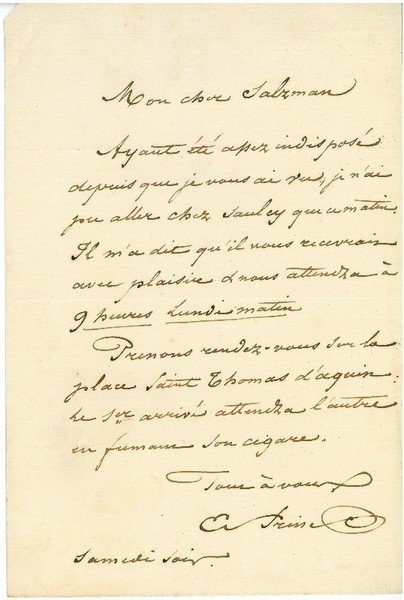 Mon cher Salzman
Ayant été assez indisposé
depuis que je vous ai vu, je n'ai
pu aller chez Saulcy que ce matin.
Il m'a dit qu'il vous recevrait
avec plaisir & nous attendra à
9 heures Lundi matin
Prenons rendez-vous sur la
place Saint Thomas d'aquin:
le 1er arrivé attendra l'autre
en fumant son cigare.
Tout à vous
Samedi soir.